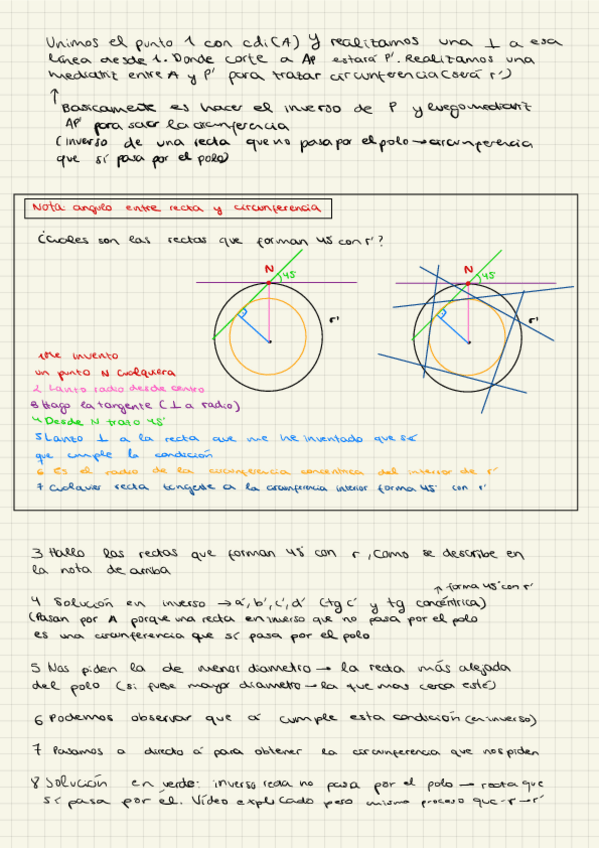 Unimos el punto 1 con cdi(A) y realizamos una ⊥ a esa
línea desde 1. Donde corte a AP estará P'. Realizamos una
mediatriz entre A y P' para trazar circunferencia (será r')
↑
Basicamente es hacer el inverso de P y luego mediatriz
AP' para sacar la circunferencia
(inverso de una recta que no pasa por el polo → circunferencia
que sí pasa por el polo)
Nota: angulo entre recta y circunferencia
¿Cuales son las rectas que forman 45 con r'?
N
45
r'
N
45
r'
1 Me invento
un punto N cualquiera
2 Lanzo radio desde centro
3 Hago la tangente (⊥ a radio)
4 Desde N trazo 45°
5 Lanzo ⊥ a la recta que me he inventado que sé
que cumple la condición
6 Es el radio de la circunferencia concentrica del interior de r'
7 Cualquier recta tangente a la circunferencia interior forma 45° con r'
3 Hallo las rectas que forman 45° con r, como se describe en
la nota de arriba
↗ forma 45° con r'
4 Solución en inverso → a', b', c', d' (tg c' y tg concéntrica)
(Pasan por A porque una recta en inverso que no pasa por el polo
es una circunferencia que sí pasa por el polo
5 Nos piden la de menor diametro → la recta más alejada
del polo (si fuese mayor diametro → la que mas cerca esté)
6 Podemos observar que a' cumple esta condición (en inverso)
7 Pasamos a directo a' para obtener la circunferencia que nos piden
8 Solución en verde: inverso recta no pasa por el polo → recta que
sí pasa por él. Vídeo explicado pero mismo proceso que r → r'